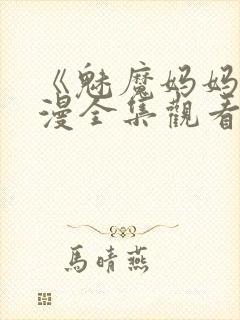 《魅魔妈妈
漫全集觀看
馬晴燕